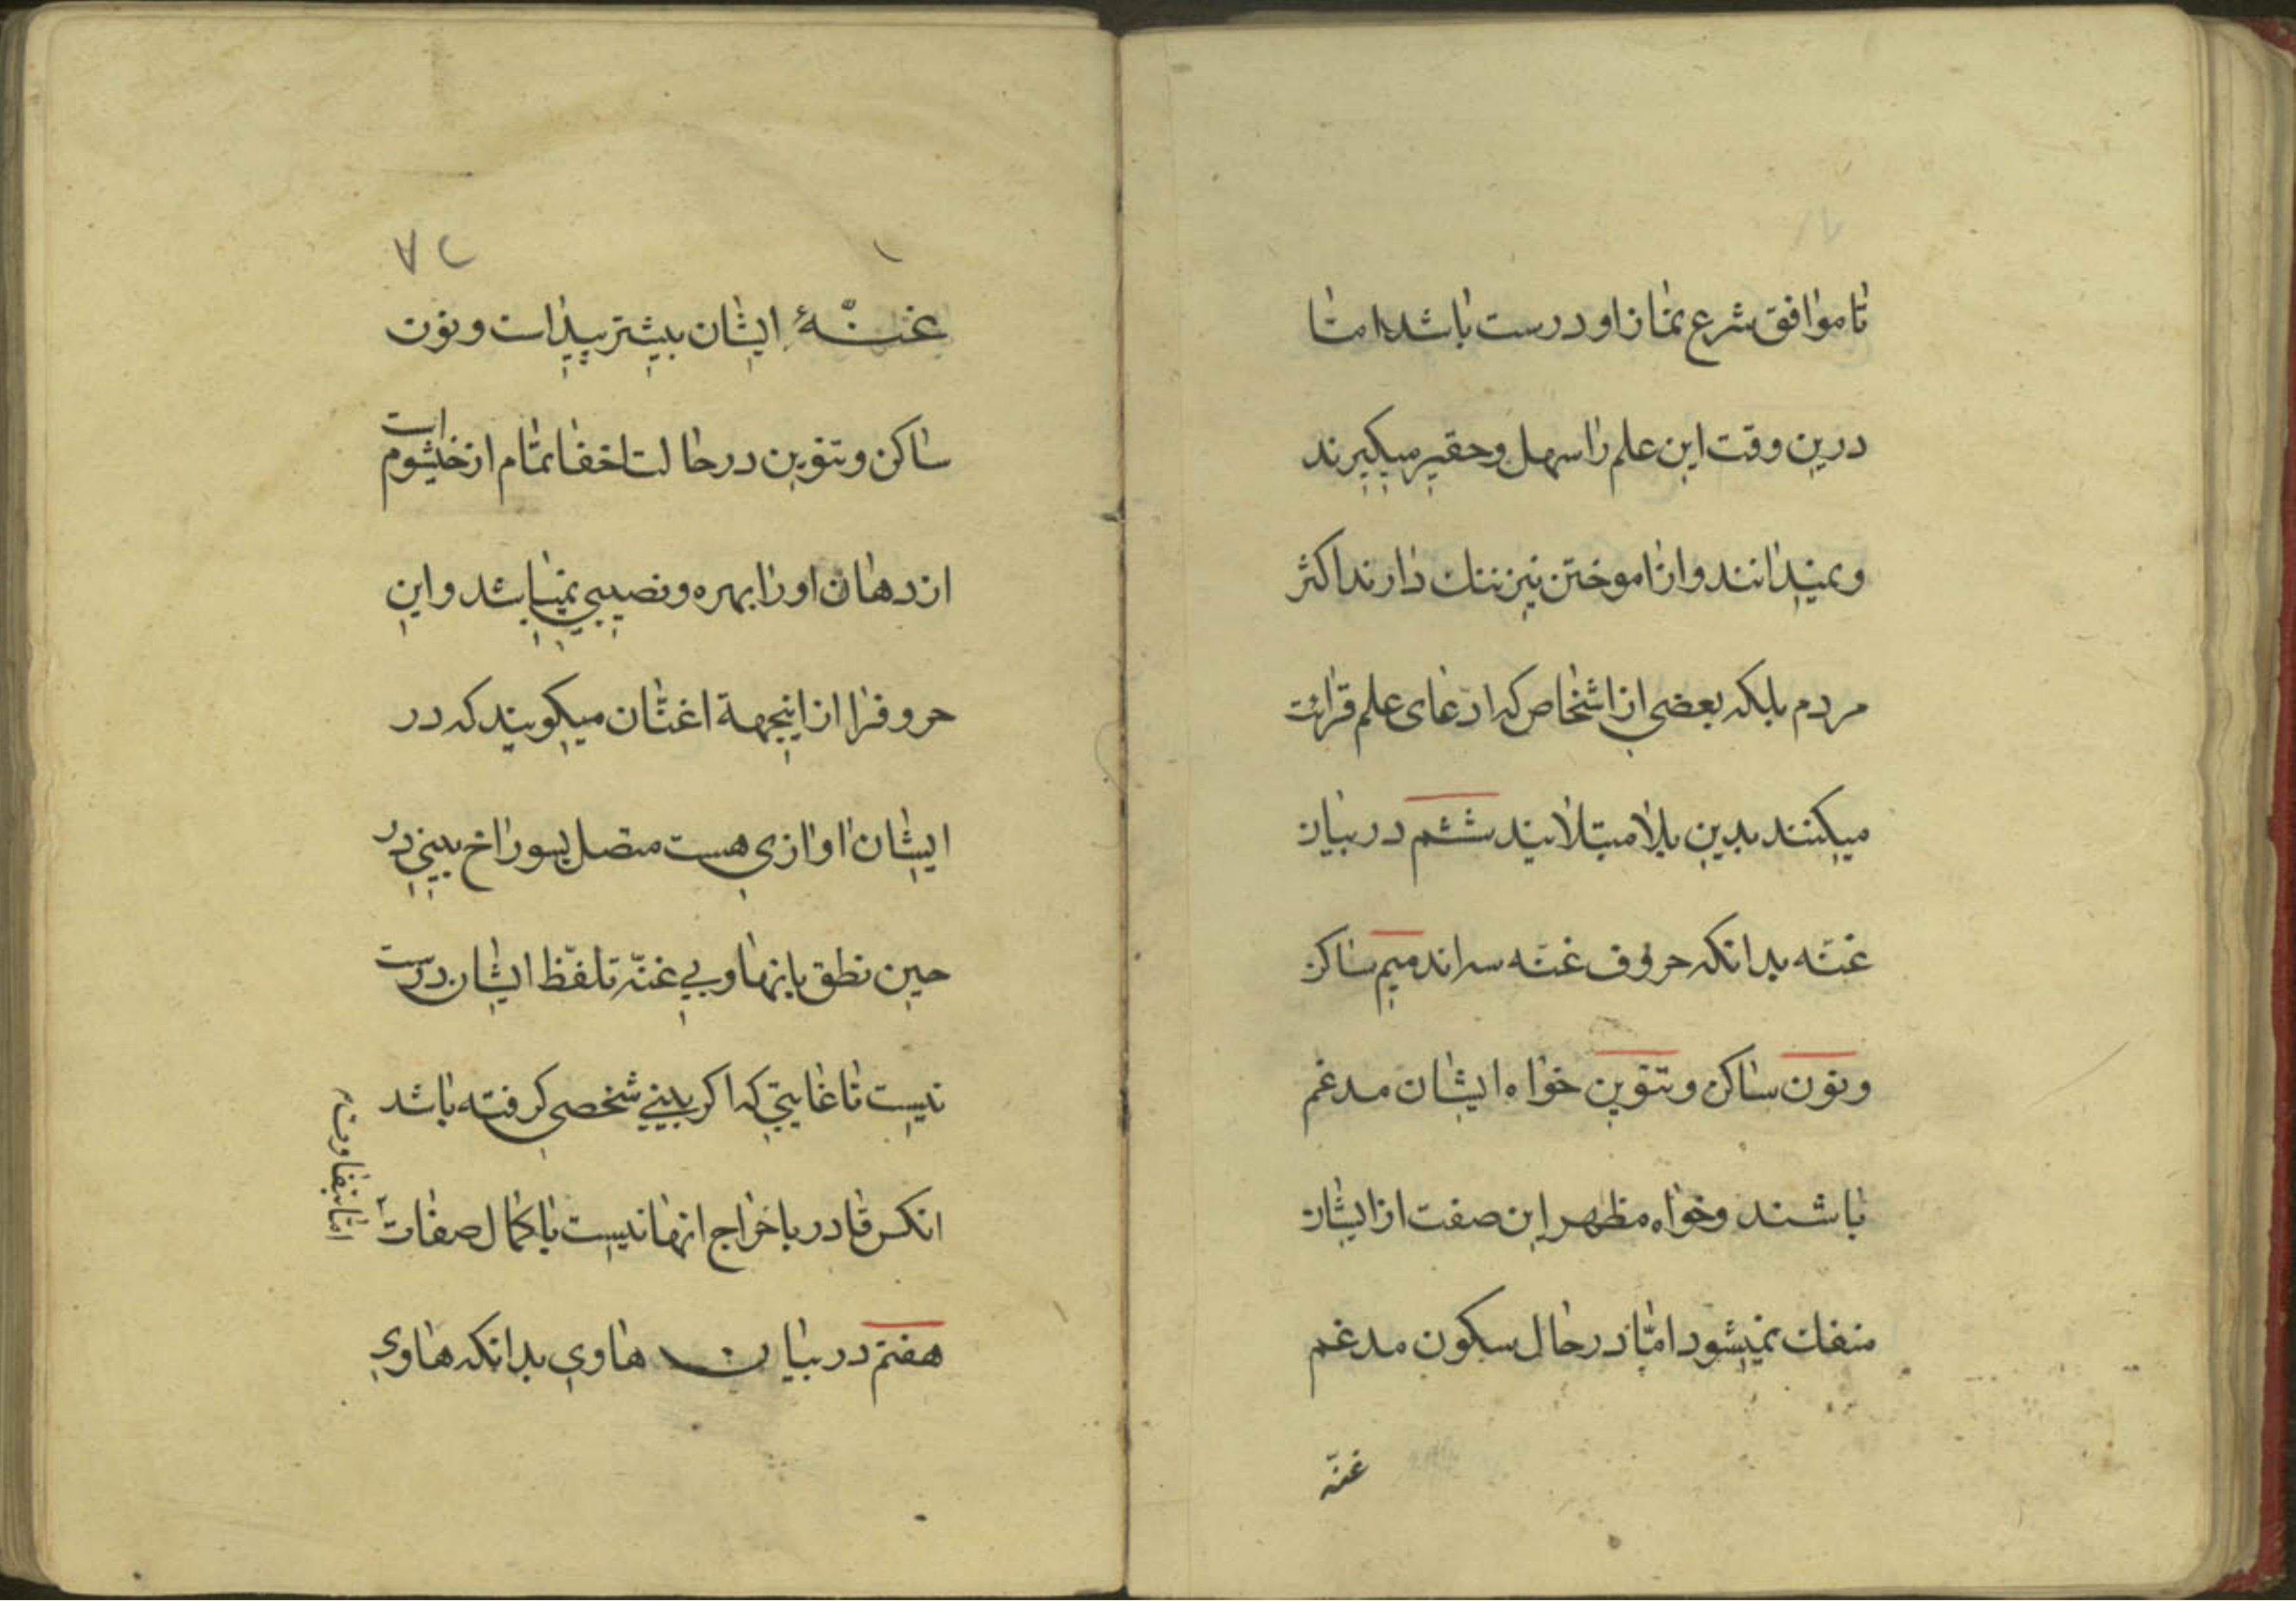 تا موافق شرع نماز او درست باشد اما
درین وقت این علم را سهل و حقیر میکیرند
و نمیدانند و از اموختن نیز ننك دارند اکثر
مردم بلکه بعضی از اشخاص که ادّعای علم قرائت
میکنند بدین بلا مبتلایند ششم در بیان
غنّه بدانکه حروف غنّه سه اند میم ساکن
و نون ساکن و تنوین خواه ایشان مدغم
باشند و خواه مظهر این صفت از ایشان
منفك نمیشود امّا در حال سکون مدغم
غنّه
۸۲
غنّهٔ ایشان بیشتر پیدا است و نون
ساکن و تنوین در حالت اخفا تمام از خیشوم است
از دهان او را بهره و نصیبی نمیباشد و این
حروفرا از اینجهة اغنّان میکویند که در
ایشان اوازی هست متصل بسوراخ بینی در
حین نطق بانها و بی غنّه تلفّظ ایشان درست
نیست تا غایتی که اکر بینی شخصی کرفته باشد
انکس قادر باخراج انها نیست با کمال صفات
هفتم در بیان هاوی بدانکه هاوی